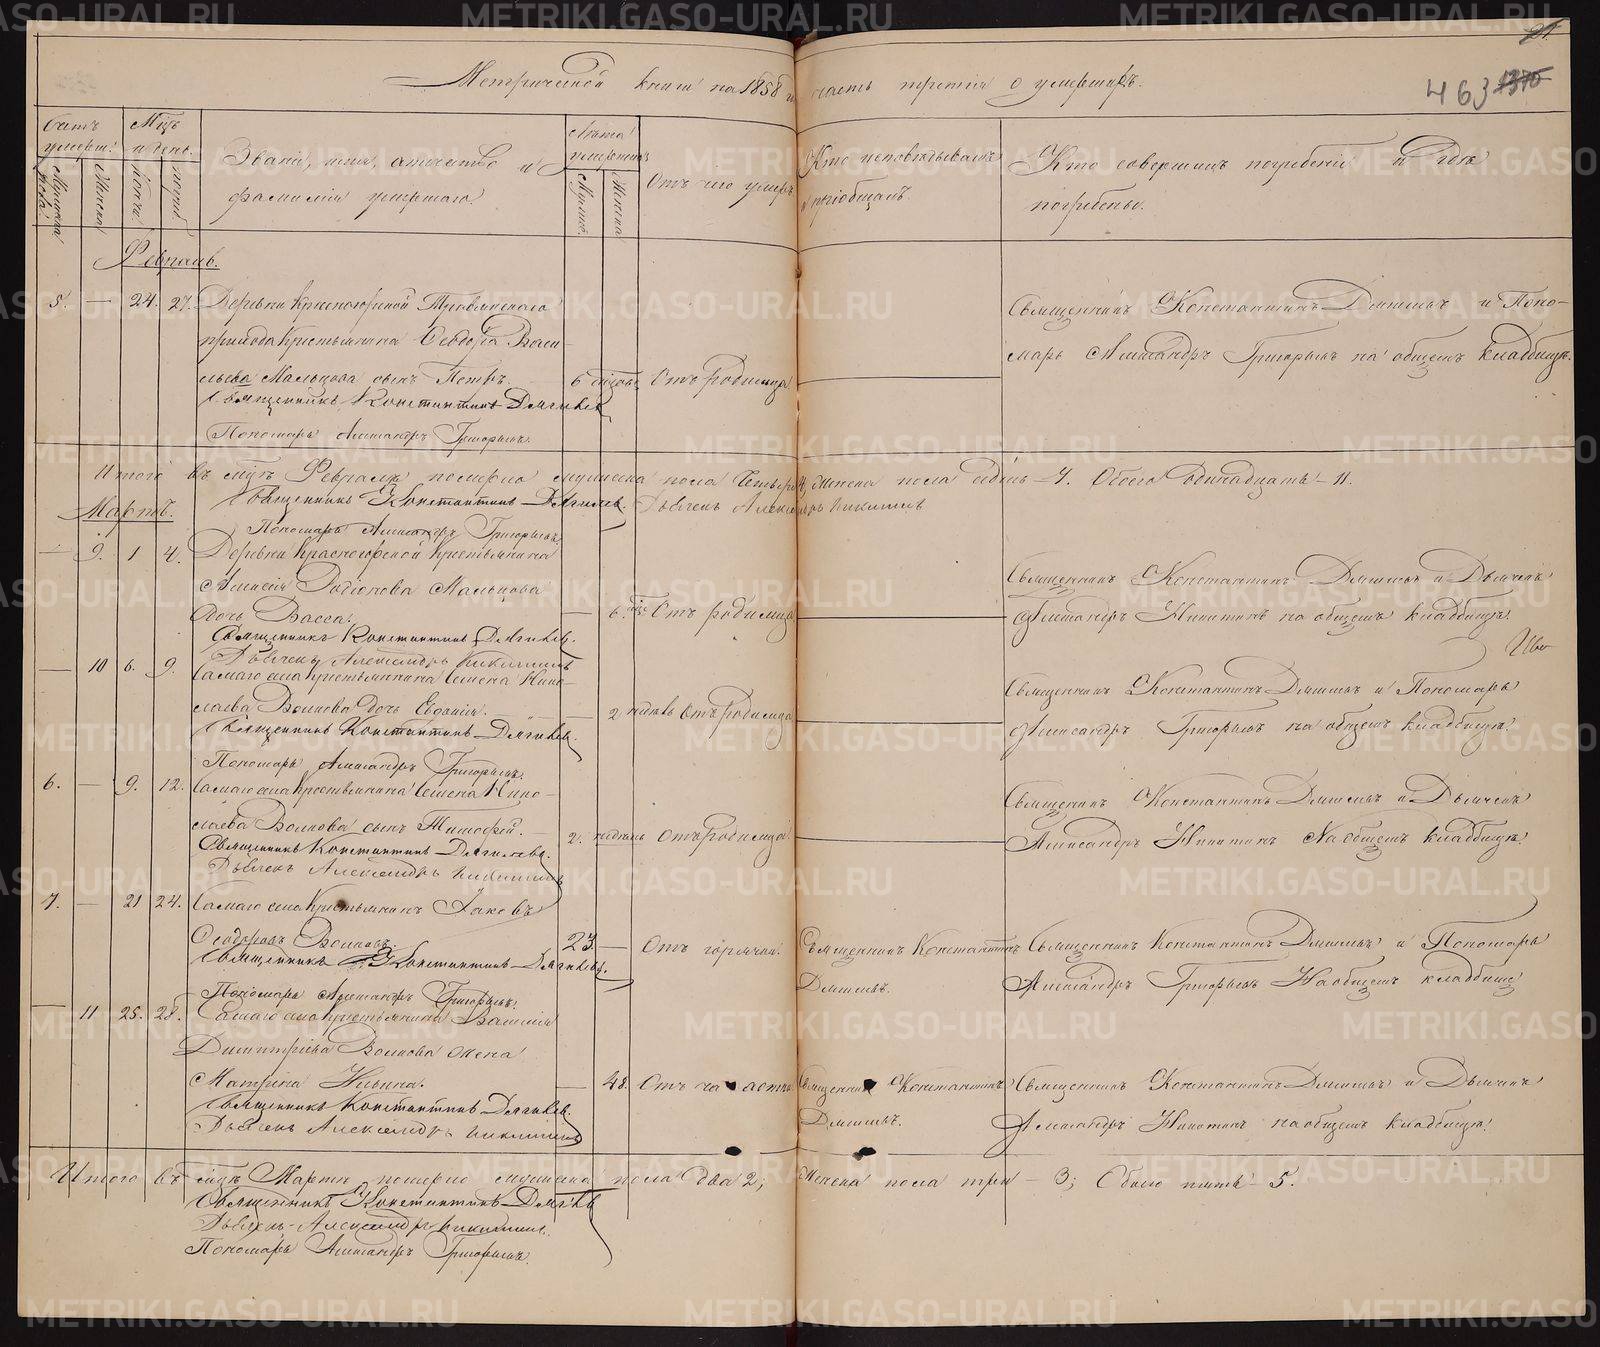 Метрической книги на 1858 г. часть третія о умершихъ.
463
Мѣц. и день.
Званіе, имя, отчество и фамилія умершаго.
Лѣта умершаго
Отъ чего умеръ
Кто исповѣдывалъ и пріобщалъ.
Кто совершалъ погребеніе и гдѣ погребены.
Мужеска пола.
Женска
Февраль.
5. — 24. 27. Деревни Красногорской
прихода Крестьянина Ѳеодота Васи-
льева Мальцова сынъ Петръ. 6 Отъ родимца
Священникъ Константинъ и Поно-
марь Александръ Григорьевъ на общемъ кладбищѣ.
Священникъ Константинъ
Пономарь Александръ Григорьевъ.
Итого въ мцѣ Февралѣ померло мужеска пола Четыре 4, женска пола седмь — 7. Обоего Одинадцать — 11.
Священникъ Константинъ Дьячекъ Александръ Никитинъ
Пономарь Александръ Григорьевъ.
Мартъ.
— 9. 1 4. Деревни Красногорской Крестьянина
Алексѣя Родіонова Мальцова
дочь Васса. — 6. Отъ родимца
Священникъ Константинъ и Дьячекъ
Александръ Никитинъ на общемъ кладбищѣ.
Священникъ Константинъ
Дьячекъ Александръ Никитинъ
— 10 6. 9. Самаго села Крестьянина Семена Нико-
лаева Волкова дочь Евдокія. — 2 недѣль Отъ родимца
Священникъ Константинъ и Пономарь
Александръ Григорьевъ на общемъ кладбищѣ.
Священникъ Константинъ
Пономарь Александръ Григорьевъ.
6. — 9. 12. Самаго села Крестьянина Семена Нико-
лаева Волкова сынъ Тимофей. — 2. недѣль Отъ родимца
Священникъ Константинъ и Дьячекъ
Александръ Никитинъ На общемъ кладбищѣ.
Священникъ Константинъ
Дьячекъ Александръ Никитинъ
7. — 21 24. Самаго села Крестьянинъ Іаковъ
Ѳеодоровъ Волковъ. 23. — Отъ горячки. Священникъ Константинъ
Священникъ Константинъ и Пономарь
Александръ Григорьевъ На общемъ кладбищѣ
Священникъ Константинъ
Пономарь Александръ Григорьевъ.
— 11 25. 28. Самаго села Крестьянина Василія
Димитріева Волкова жена
Матрена Ильина. — 48. Отъ чахотки Священникъ Константинъ
Священникъ Константинъ и Дьячекъ
Александръ Никитинъ на общемъ кладбищѣ.
Священникъ Константинъ
Дьячекъ Александръ Никитинъ
Итого въ мцѣ Мартѣ померло мужеска пола два 2; Женска пола три — 3; Обоего пять — 5.
Священникъ Константинъ
Дьячекъ Александръ Никитинъ.
Пономарь Александръ Григорьевъ.
METRIKI.GASO-URAL.RU